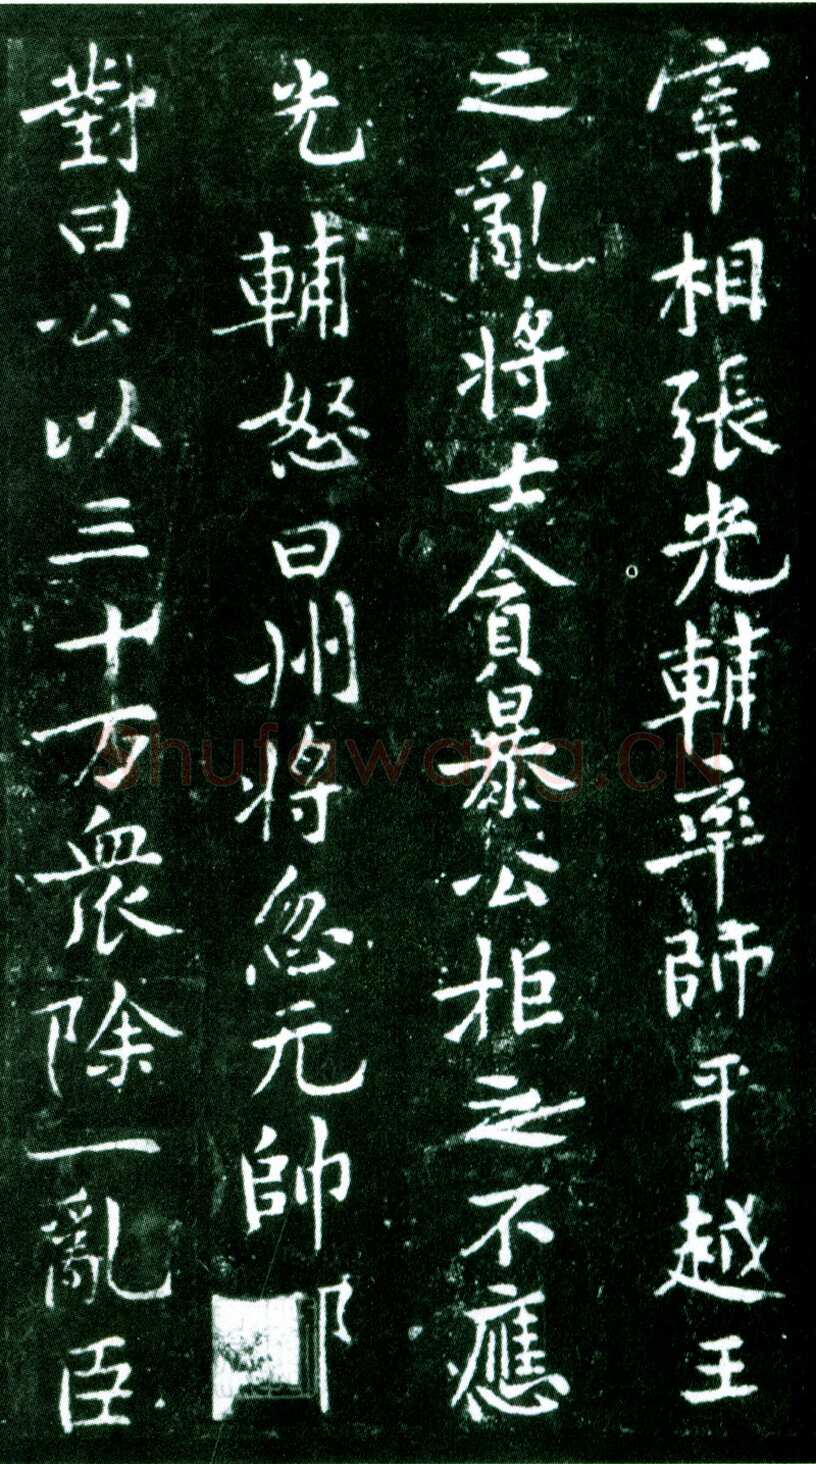 宰相張光輔率師平越王
之亂將士貪暴公拒之不應
光輔怒曰州將忽元帥
對曰公以三十万衆除一亂臣
Shufawang.CN